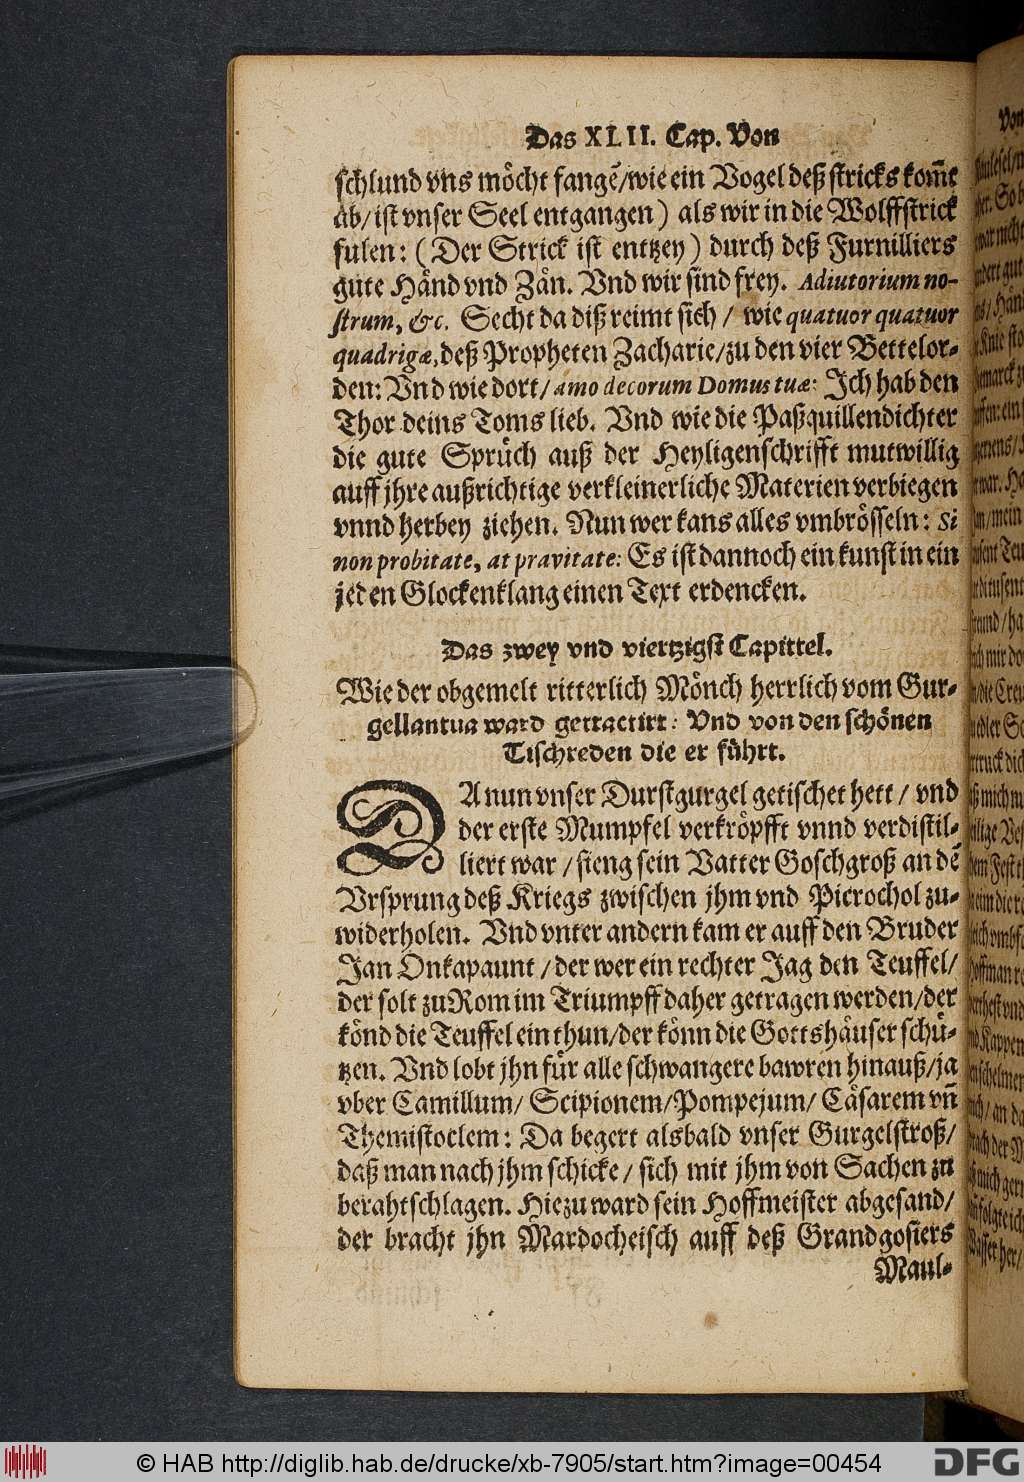 Das XLII. Cap. Von
schlund vns möcht fangẽ/wie ein Vogel deß stricks kom̃t
ab/ist vnser Seel entgangen) als wir in die Wolffstrick
fulen: (Der Strick ist entzey) durch deß Furnilliers
gute Händ vnd Zän. Vnd wir sind frey. Adiutorium no-
strum, &c. Secht da diß reimt sich / wie quatuor quatuor
quadrigæ, deß Propheten Zacharie/zu den vier Bettelor-
den: Vnd wie dort/amo decorum Domus tuæ: Ich hab den
Thor deins Toms lieb. Vnd wie die Paßquillendichter
die gute Sprüch auß der Heyligenschrifft mutwillig
auff jhre außrichtige verkleinerliche Materien verbiegen
vnnd herbey ziehen. Nun wer kans alles vmbrösseln: Si
non probitate, at pravitate: Es ist dannoch ein kunst in ein
jeden Glockenklang einen Text erdencken.
Das zwey vnd viertzigst Capittel.
Wie der obgemelt ritterlich Mönch herrlich vom Gur-
gellantua ward getractirt: Vnd von den schönen
Tischreden die er führt.
DA nun vnser Durstgurgel getischet hett / vnd
der erste Mumpfel verkröpfft vnnd verdistil-
liert war / fieng sein Vatter Goschgroß an dẽ
Vrsprung deß Kriegs zwischen jhm vnd Picrochol zu-
widerholen. Vnd vnter andern kam er auff den Bruder
Jan Onkapaunt / der wer ein rechter Jag den Teuffel/
der solt zu Rom im Triumpff daher getragen werden/der
könd die Teuffel ein thun/der könn die Gottshäuser schü-
tzen. Vnd lobt jhn für alle schwangere bawren hinauß/ja
vber Camillum/ Scipionem/Pompejum/ Cäsarem vn̄
Themistoclem: Da begert alsbald vnser Gurgelstroß/
daß man nach jhm schicke / sich mit jhm von Sachen zu
berahtschlagen. Hiezu ward sein Hoffmeister abgesand/
der bracht jhn Mardocheisch auff deß Grandgosiers
Maul-
© HAB http://diglib.hab.de/drucke/xb-7905/start.htm?image=00454
DFG